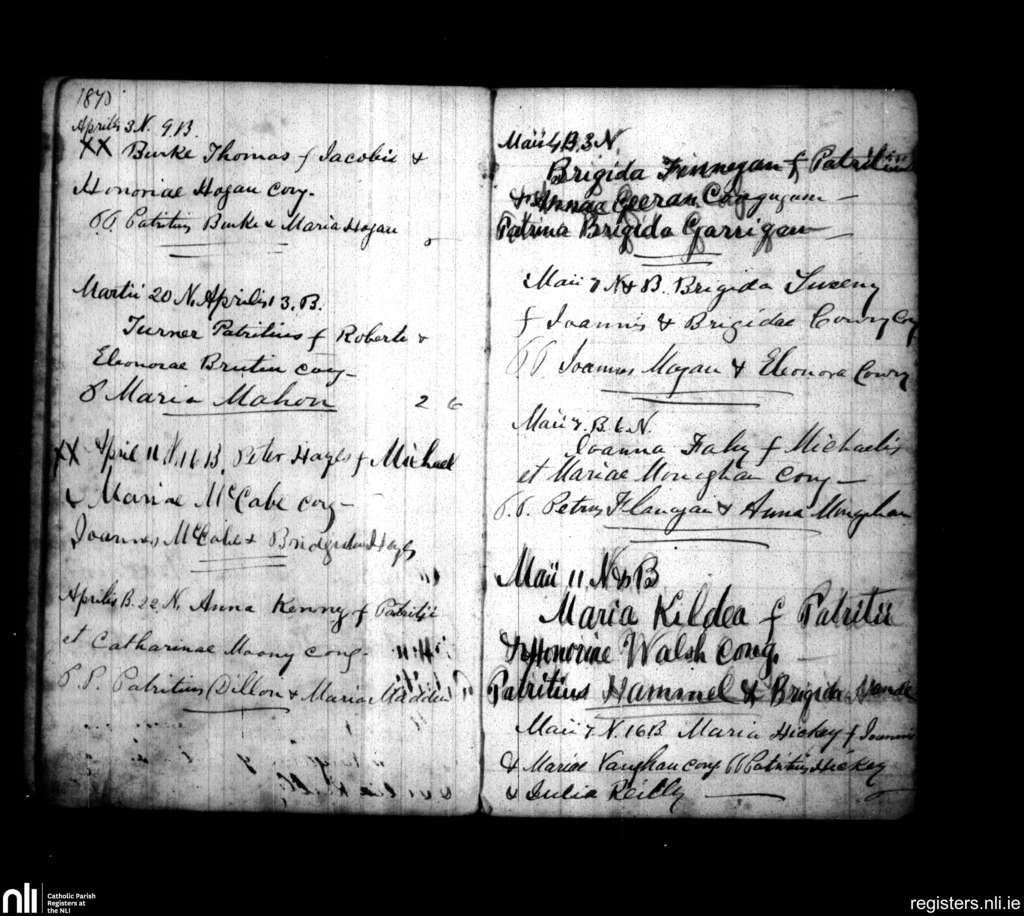 1870
Aprilis 3 N. 9. B.
XX Burke Thomas f Jacobii &
Honoriae Hogan conj.
PP. Patritius Burke & Maria Hogan
Martii 20 N. Aprilis 13. B.
Turner Patritius f Roberti &
Eleonorae Brutin conj—
P Maria Mahon 2 6
XX April 11 N. 16 B. Peter Hayls f Michael
& Mariae McCabe conj—
Joannes McCabe & Bridgida Hayls
Aprilis B. 22 N. Anna Kenny f Patritii
et Catharinae Moony conj.
P. P. Patritius Dillon & Maria Madden
Maii 4 B. 3 N.
Brigida Finnegan f Patritii
& Annae Geeran
Patrina Brigida Garrigan—
Maii 7 N & B. Brigida
f Joannis & Brigidae Conry Conj
PP. Joannes Magan & Eleonora Conry
Maii 7. B. 6. N.
Joanna Fahy f Michaelis
et Mariae Monighan conj—
P. P. Petrus Flanagan & Anna Monighan
Maii 11. N & B
Maria Kildea f Patritii
& Honoriae Walsh Conj.
Patritius Hammel & Brigida
Maii 7 N. 16 B Maria Hickey f Joannis
& Mariae Vaughan conj PP Patritius Hickey
& Julia Reilly
nli
Catholic Parish
Registers at
the NLI
registers.nli.ie